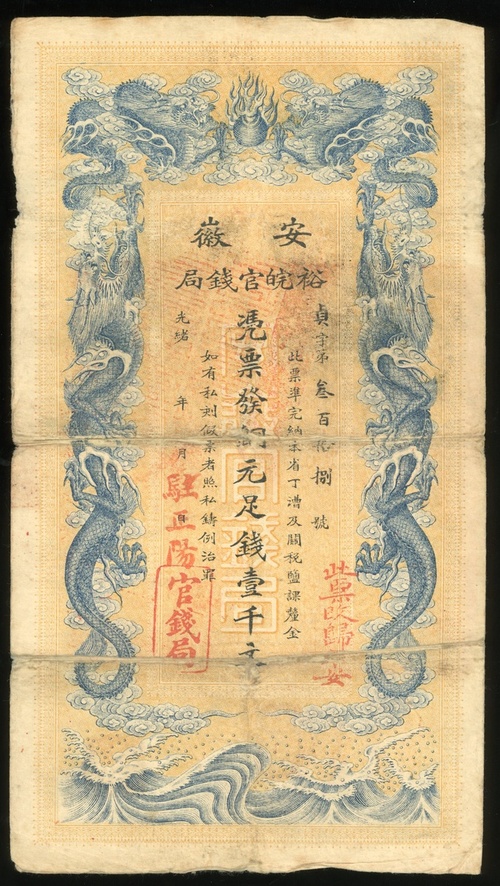 安徽
裕皖官錢局
貞字第叁百拾捌號
此票準完納本省丁漕及關稅鹽課釐金
憑票發銅元足錢壹千文
如有私刻假票者照私鑄例治罪
光緒 年 月 日
駐正陽官錢局
此票改歸安